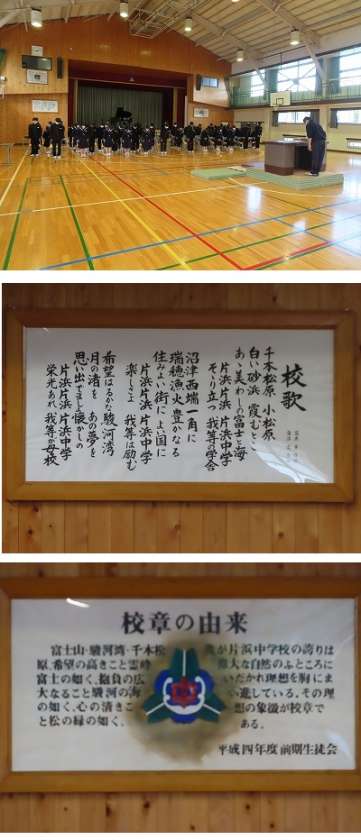 校歌
千本松原 小松原
白い砂浜 霞むとこ
あゝ美わしの富士と海
片浜片浜 片浜中学
そゝり立つ 我等の学舎
沼津西端一角に
瑞穂漁火豊かなる
住みよい街によい国に
片浜片浜 片浜中学
楽しさよ 我等は励む
希望はるかな駿河湾
月の渚を あの夢を
思い出でまして懐かしの
片浜片浜 片浜中学
栄光あれ 我等が母校
校章の由来
富士山・駿河湾・千本松
原、希望の高きこと霊峰
富士の如く、抱負の広
大なること駿河の海
の如く、心の清きこ
と松の緑の如く、
我が片浜中学校の誇りは
偉大な自然のふところに
いだかれ理想を胸にま
い進している。その理
想の象徴が校章で
ある。
平成四年度 前期生徒会